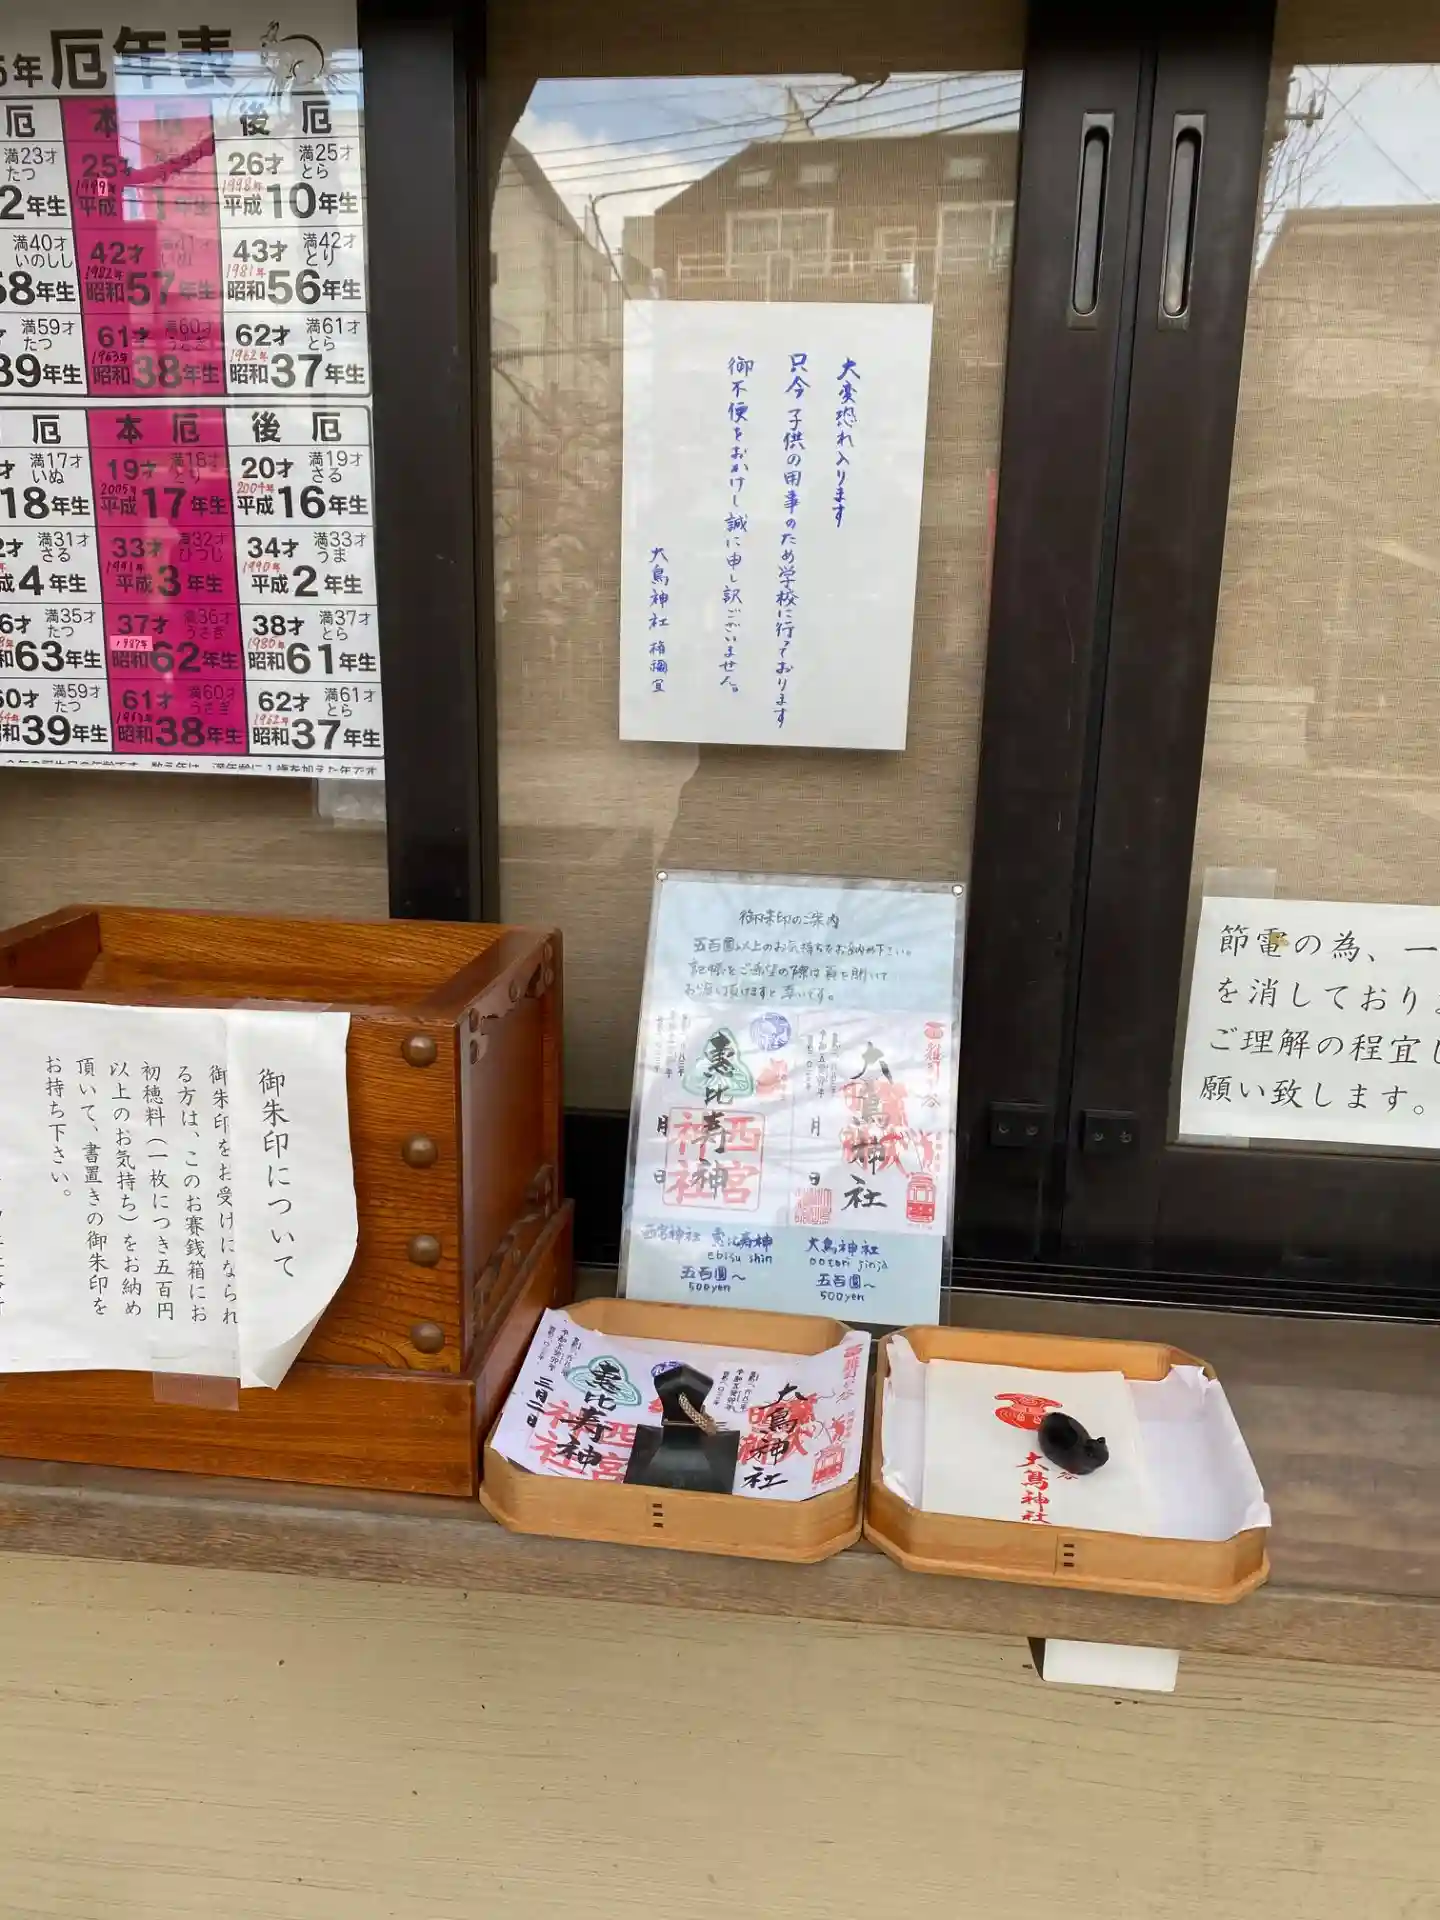 5年 厄年表
厄 本厄 後厄
満23才 25才 満24才 26才 満25才
たつ うさぎ とら
1999年 1998年
2年生 平成11年生 平成10年生
満40才 42才 満41才 43才 満42才
いのしし いぬ とり
1982年 1981年
58年生 昭和57年生 昭和56年生
満59才 61才 満60才 62才 満61才
たつ うさぎ とら
1963年 1962年
39年生 昭和38年生 昭和37年生
厄 本厄 後厄
満17才 19才 満18才 20才 満19才
いぬ とり さる
2005年 2004年
18年生 平成17年生 平成16年生
満31才 33才 満32才 34才 満33才
さる ひつじ うま
1991年 1990年
成4年生 平成3年生 平成2年生
6才 満35才 37才 満36才 38才 満37才
たつ うさぎ とら
1987年 1986年
和63年生 昭和62年生 昭和61年生
60才 満59才 61才 満60才 62才 満61才
たつ うさぎ とら
1963年 1962年
和39年生 昭和38年生 昭和37年生
大変恐れ入ります
只今 子供の用事のため学校に行っております
御不便をおかけし誠に申し訳ございません。
大鳥神社 権禰宜
御朱印のご案内
五百圓以上のお気持ちをお納め下さい。
記帳をご希望の際は頁を開いて
お渡し頂けますと幸いです。
恵比寿神
西宮神社
月 日
大鳥神社
月 日
西宮神社 恵比寿神
ebisu shin
五百圓〜
500yen
大鳥神社
ootori jinja
五百圓〜
500yen
節電の為、一
を消しており
ご理解の程宜し
願い致します。
御朱印について
御朱印をお受けになられ
る方は、このお賽銭箱にお
初穂料(一枚につき五百円
以上のお気持ち)をお納め
頂いて、書置きの御朱印を
お持ち下さい。
恵比寿神
三月二日
大鳥神社
大鳥神社